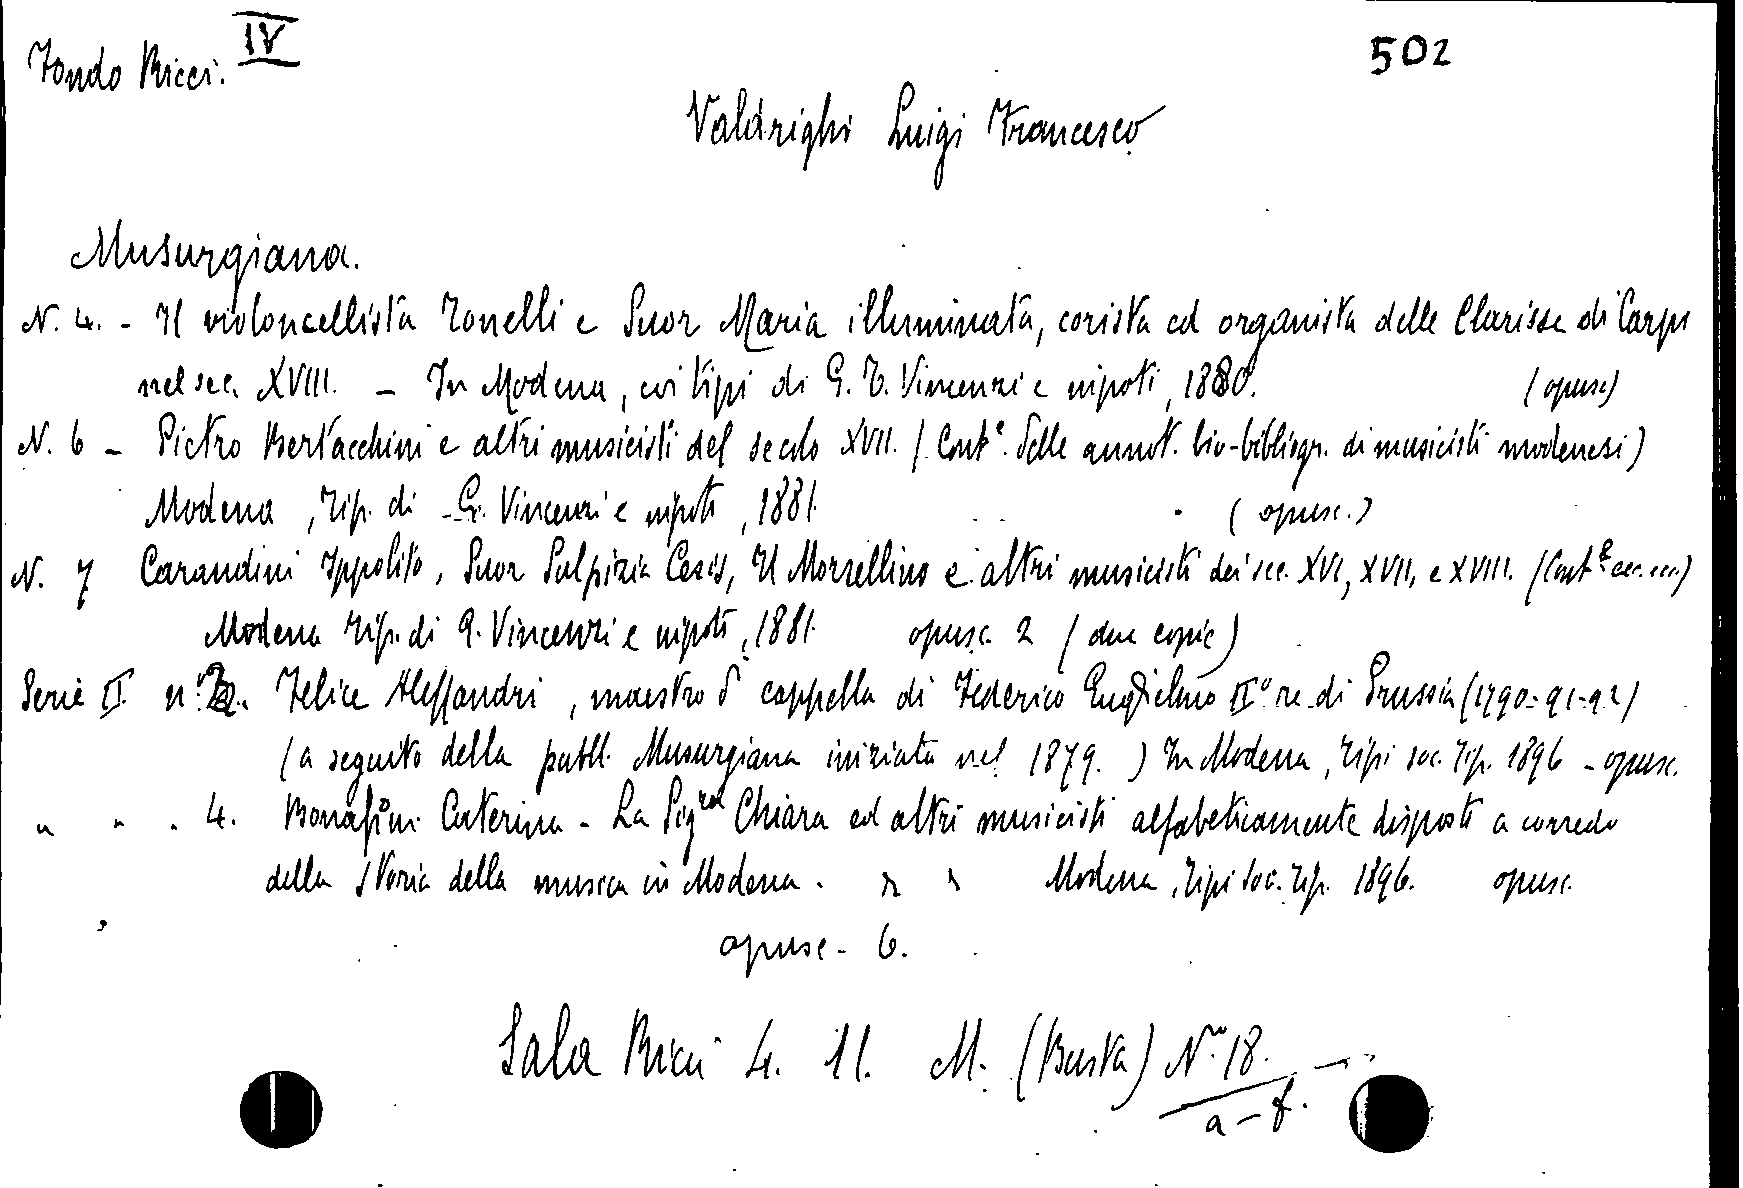 Fondo Ricci. IV 502
Valdrighi Luigi Francesco
Musurgiana.
N. 4. - Il violoncellista Tonelli e Suor Maria illuminata, corista ed organista delle Clarisse di Carpi
nel sec. XVIII. - In Modena, coi tipi di G. T. Vincenzi e nipoti, 1880. (opusc)
N. 6 - Pietro Bertacchini e altri musicisti del secolo XVII. (Cont.e delle annot. bio-bibliogr. di musicisti modenesi)
Modena, Tip. di G. Vincenzi e nipoti, 1881. (opusc.)
N. 7 Carandini Ippolito, Suor Sulpizia Cesis, Il Morsellino e altri musicisti dei sec. XVI, XVII, e XVIII. (Cont.e ecc. ecc.)
Modena Tip. di G. Vincenzi e nipoti, 1881. opusc. 2 (due copie)
Serie II n. Felice Alessandri, maestro di cappella di Federico Guglielmo II° re di Prussia (1790-91-92)
(a seguito della pubbl. Musurgiana iniziata nel 1879.) In Modena, Tipi soc. Tip. 1896 - opusc.
" " . 4. Bonafini Caterina - La Sig.ra Chiara ed altri musicisti alfabeticamente disposti a corredo
della storia della musica in Modena. " " Modena, Tipi Soc. Tip. 1896. opusc.
opusc - 6.
Sala Ricci 4. 11. M. (Busta) N.º 18.
a - f.